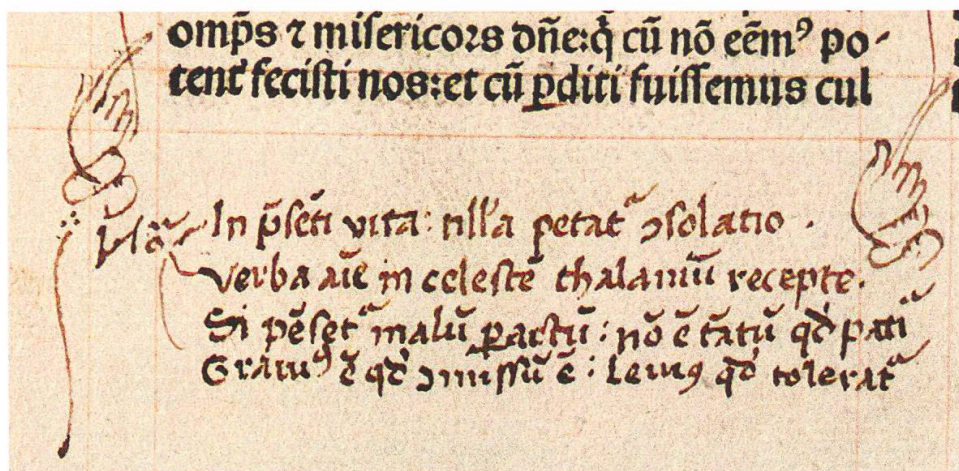 omp̄s ⁊ miſericors dn̄e:q̄ cū nō eēmꝰ po-
tent̄ feciſti nos:et cū ꝑditi fuiſſemus cul
Nōᵃ In p̄sēti vita: nll'a petatᵃ ꝯsolatio .
Verba aīe in celestē thalamū recepte.
Si pēsetᵃ malū ꝑactū : nō ē tātū qđ patiᵃ
Grauiꝰ ē qđ ꝯmissū ē : Leuiꝰ qđ toleratᵃ